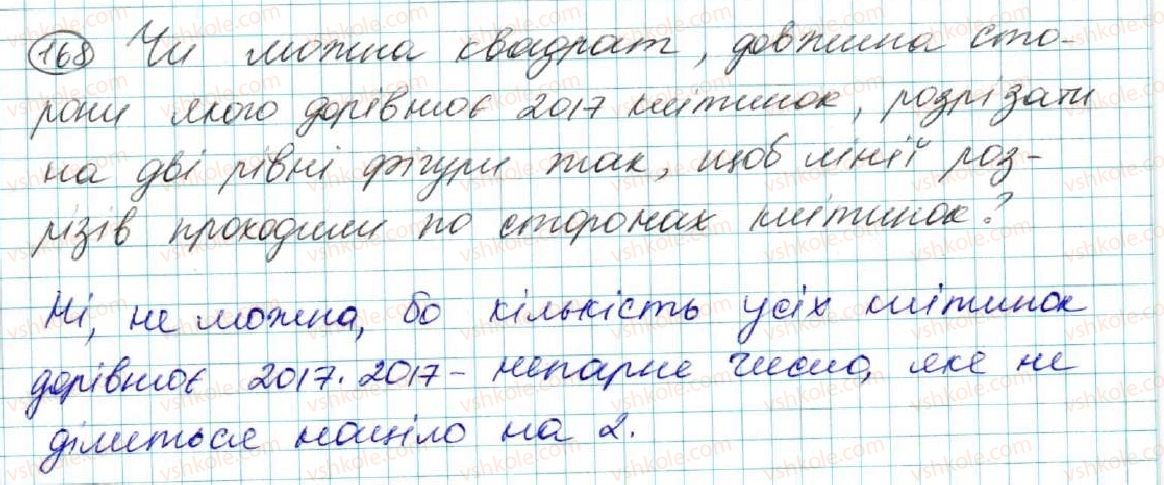 168 Чи можна квадрат, довжина сто-
рони якого дорівнює 2017 клітинок, розрізати
на дві рівні фігури так, щоб лінії роз-
різів проходили по сторонах клітинок?
Ні, не можна, бо кількість усіх клітинок
дорівнює 2017·2017 - непарне число, яке не
ділиться націло на 2.